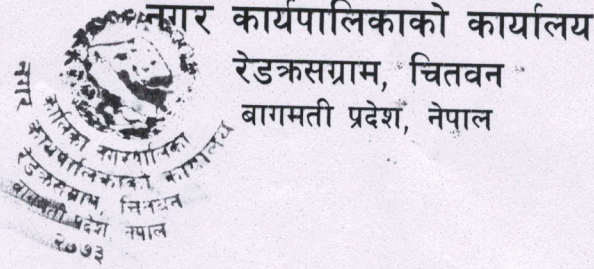 नगर कार्यपालिकाको कार्यालय
रेडक्रसग्राम, चितवन
बागमती प्रदेश, नेपाल
कालिका नगरपालिका
नगर कार्यपालिकाको कार्यालय
रेडक्रसग्राम, चितवन
बागमती प्रदेश, नेपाल
२०७३